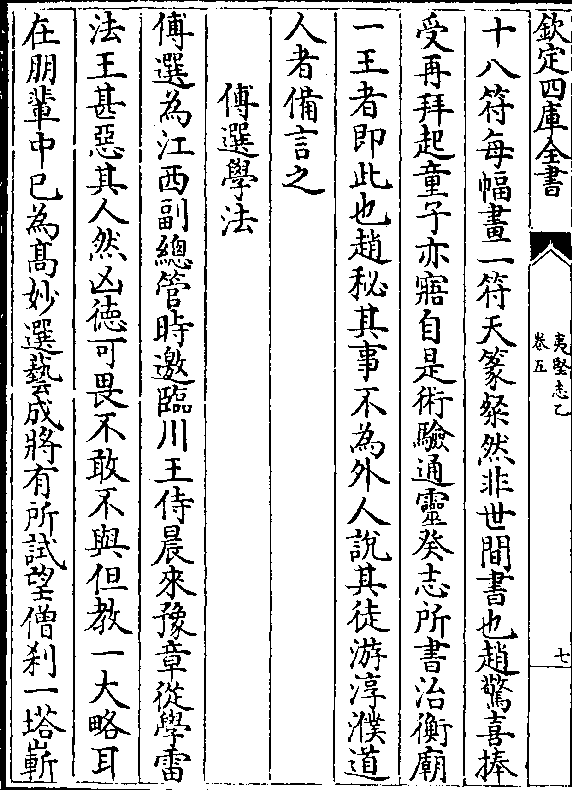 欽定四庫全書
夷堅志乙
卷五
七
十八符每幅畫一符天篆粲然非世間書也趙驚喜捧
受再拜起童子亦寤自是術驗通靈癸志所書治衡廟
一王者即此也趙秘其事不為外人說其徒游淳濮道
人者備言之
傅選學法
傅選為江西副總管時邀臨川王侍晨來豫章從學雷
法王甚惡其人然凶徳可畏不敢不與但教一大略耳
在朋輩中已為髙妙選藝成將有所試望僧刹一塔嶄